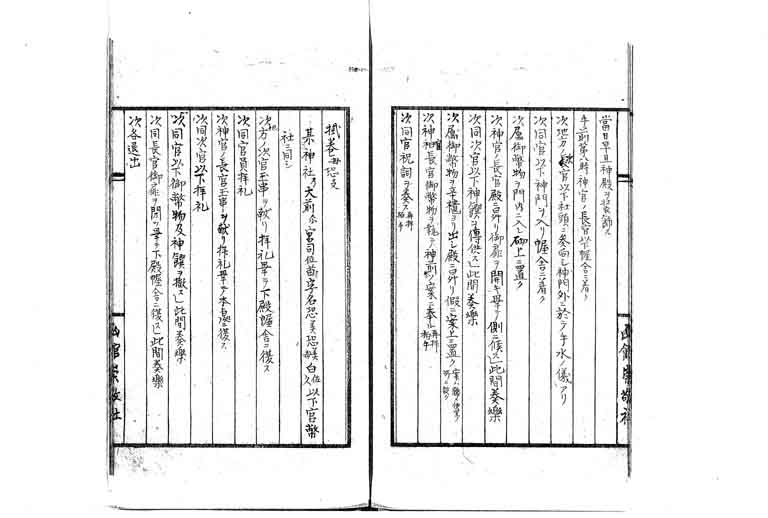 當日早旦神殿ヲ装飾ス
午前第八時神官ノ長官以下幄舎ニ着ク
次地方ノ次官以下社頭ニ参向シ神門外ニ於テ手水ノ儀アリ
次同官以下神門ヲ入リ幄舎ニ着ク
次屬御幣物ヲ門内ニ入レ砌上ニ置ク
次神官ノ長官殿ニ昇リ御扉ヲ開キ畢テ側ニ候ス」此間奏樂
次同次官以下神饌ヲ傳供ス」此間奏樂
次屬御幣物ヲ辛櫃ヨリ出シ殿ニ昇リ假ニ案上ニ置ク
次神官ノ長官御幣物ヲ神前ノ案ニ奉ル 再拝拍手
次同官祝詞ヲ奏ス 再拝拍手
掛巻毋恐支
某神社乃大前尓宮司位苗字名恐美恐美毛白久 以下官幣
社ニ同シ
次地方ノ次官玉串ヲ献リ拝礼畢テ下殿幄舎ニ復ス
次同官員拝礼
次神官ノ長官玉串ヲ献リ拝礼畢テ本座ニ復ス
次同次官以下拝礼
次同官以下御幣物及神饌ヲ撤ス」此間奏樂
次同長官御扉ヲ閉ツ畢テ下殿幄舎ニ復ス」此間奏樂
次各退出